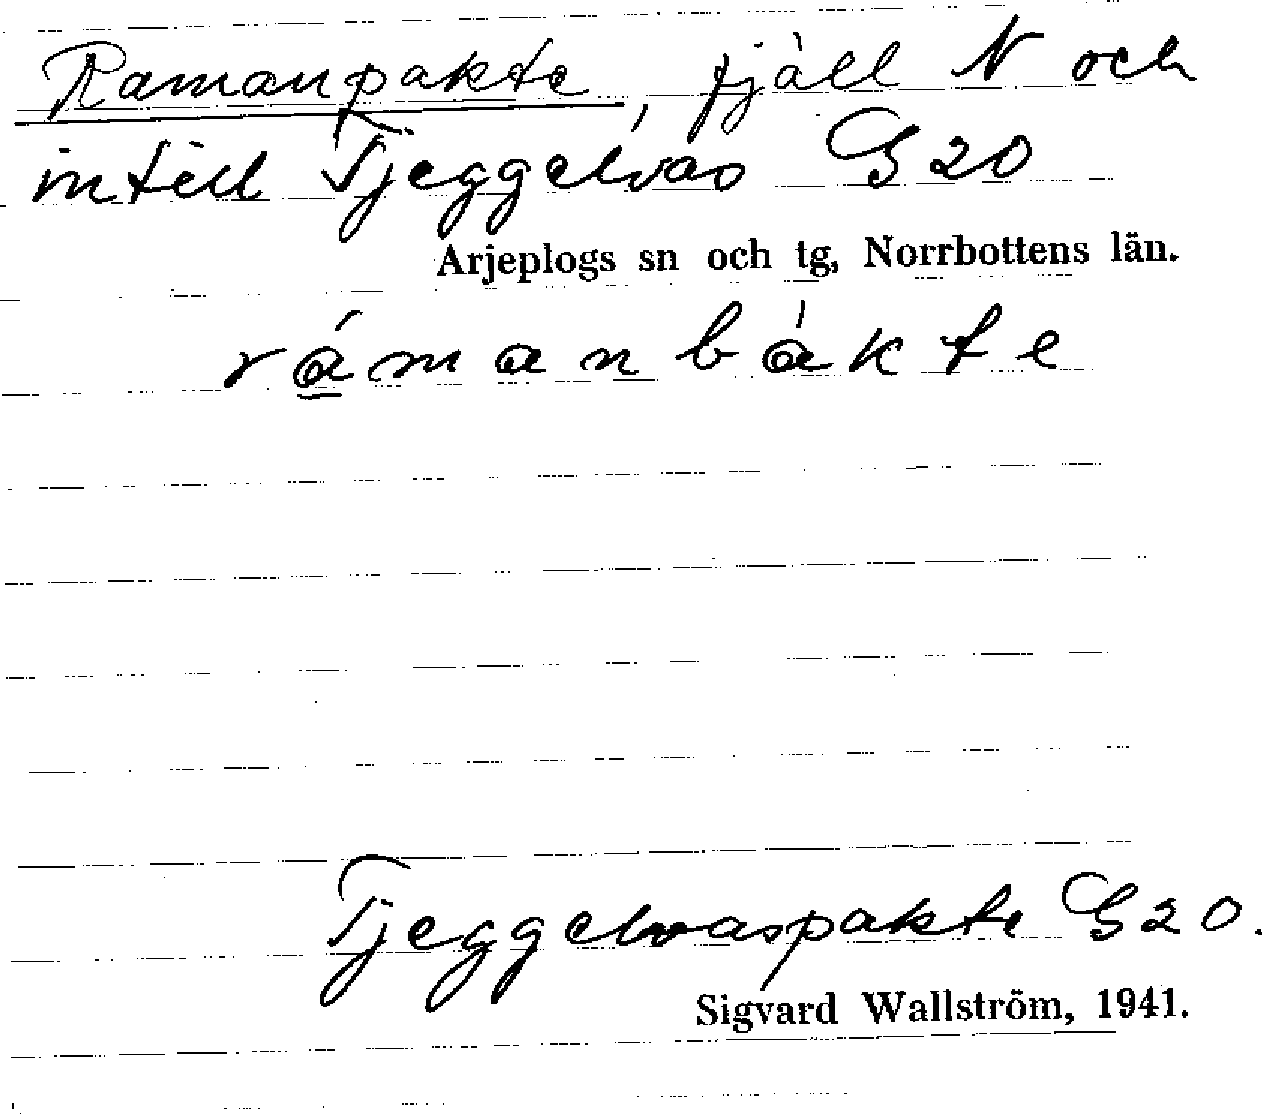 Ramanpakte, fjäll N och
intill Tjeggelvas G20
Arjeplogs sn och tg, Norrbottens län.
rá̱manbàkte
Tjeggelvaspakte G20.
Sigvard Wallström, 1941.